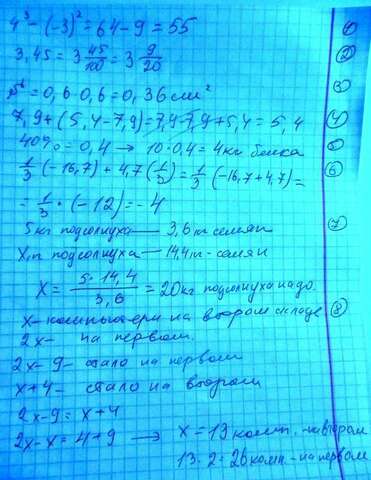 4³ - (-3)² = 64 - 9 = 55 ①
3,45 = 3 45/100 = 3 9/20 ②
= 0,6 · 0,6 = 0,36 см² ③
7,9 + (5,4 - 7,9) = 7,9 - 7,9 + 5,4 = 5,4 ④
40% = 0,4 → 10 · 0,4 = 4 кг белка ⑤
1/3 (-16,7) + 4,7 (1/3) = 1/3 (-16,7 + 4,7) = ⑥
= 1/3 · (-12) = -4
5 кг подсолнуха — 3,6 кг семян ⑦
X подсолнуха — 14,4 семян
X = 5 · 14,4 / 3,6 = 20 кг подсолнуха надо.
x - компьютери на втором складе ⑧
2x - на первом.
2x - 9 - стало на первом
x + 4 - стало на втором
2x - 9 = x + 4
2x - x = 4 + 9 → x = 13 комп. - на втором
13 · 2 = 26 комп. - на первом